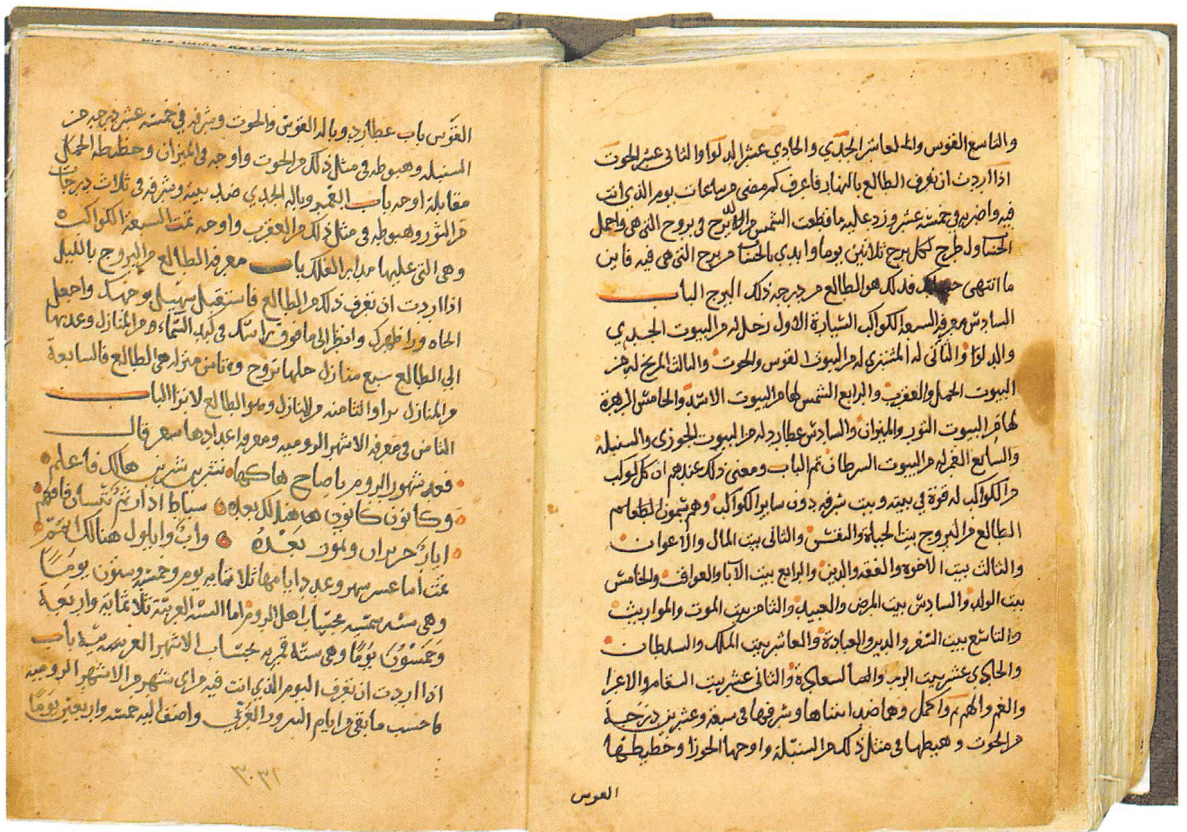 والتاسع القوس والعاشر الجدي والحادي عشر الدلو والثاني عشر الحوت
اذا اردت ان تعرف الطالع بالنهار فاعرف كم مضى من ساعات يوم الذي انت
فيه واضربه في خمسة عشر وزد عليه ما قطعت الشمس من البرج في بروج التي هي واجمل
الحساب واطرح لكل برج ثلاثين يوما وابدي بالحساب من برج التي هي فيه فاين
ما انتهى فذلك هو الطالع من درجة ذلك البرج الباب
السادس معرفة السبعة الكواكب السيارة الاول زحل له من البيوت الجدي
والدلو والثاني له المشتري له من البيوت القوس والحوت والثالث المريخ له من
البيوت الحمل والعقرب والرابع الشمس لها من البيوت الاسد والخامس الزهرة
لها من البيوت الثور والميزان والسادس عطارد له من البيوت الجوزى والسنبله
والسابع القمر له من البيوت السرطان تم الباب ومعنى ذلك عندهم ان كل كوكب
من الكواكب له قوة في بيته وبيت شرفه دون ساير الكواكب وهم يسمون
الطالع من البروج بيت الحياة والنفس والثاني بيت المال والاعوان
والثالث بيت الاخوة والفقه والدين والرابع بيت الابا والعواقب والخامس
بيت الولد والسادس بيت المرض والعبيد والثامن بيت الموت والمواريث
والتاسع بيت السفر والدين والعبادة والعاشر بيت الملك والسلطان
والحادي عشر بيت الرجا والسعادة والثاني عشر بيت السقام والاعدا
والغم والهم وشرفها في سبعة وعشرين درجة
من الحوت وهبطها في مثل ذلك من السنبلة واوجها الجوزا وحظيظها
القوس
القوس باب عطارد وباله القوس والحوت وشرفه في خمسة عشر درجه من
السنبله وهبوطه في مثل ذلك من الحوت واوجه في الميزان وحظيظه الحمل
مقابلة اوجه باب القمر وباله الجدي ضد بيته وشرفه في ثلاث درجات
من الثور وهبوطه في مثل ذلك من العقرب واوجه تمت السبعة الكواكب
وهي التي عليها مدار الفلك باب معرفة الطالع من البروج بالليل
اذا اردت ان تعرف ذلك من الطالع فاستقبل سهيل بوجهك واجعل
الجاه ورا ظهرك وانظر الى ما فوق راسك في كبد السماء من المنازل وعدها
الي الطالع سبع منازل والثامن منزلة هي الطالع فالسابعة
من المنازل والثامنة من المنازل وهو الطالع الباب
الثامن في معرفة الاشهر الرومية ومعرفة اعدادها شعر قال
فعد شهور الروم يا صاح هاكها تشرين تشرين هالك فاعلم
وكانون كانون بعده سباط اذار ثم نيسان فافهم
ايار حزيران وتموز بعده واب وايلول هنالك
تمت اثنا عشر شهر وعدد ايامها ثلاثمايه يوم وخمسة وستون يوما
وهي سنه شمسيه بحساب اهل الروم اما السنه العربية ثلاثماية واربعة
وخمسون يوما وهي سنة قمرية بحساب الاشهر العربية باب
اذا اردت ان تعرف اليوم الذي انت فيه من اي شهر من الاشهر الرومية
فاحسب ما بقي من ايام واضف اليه خمسه واربعين يوما